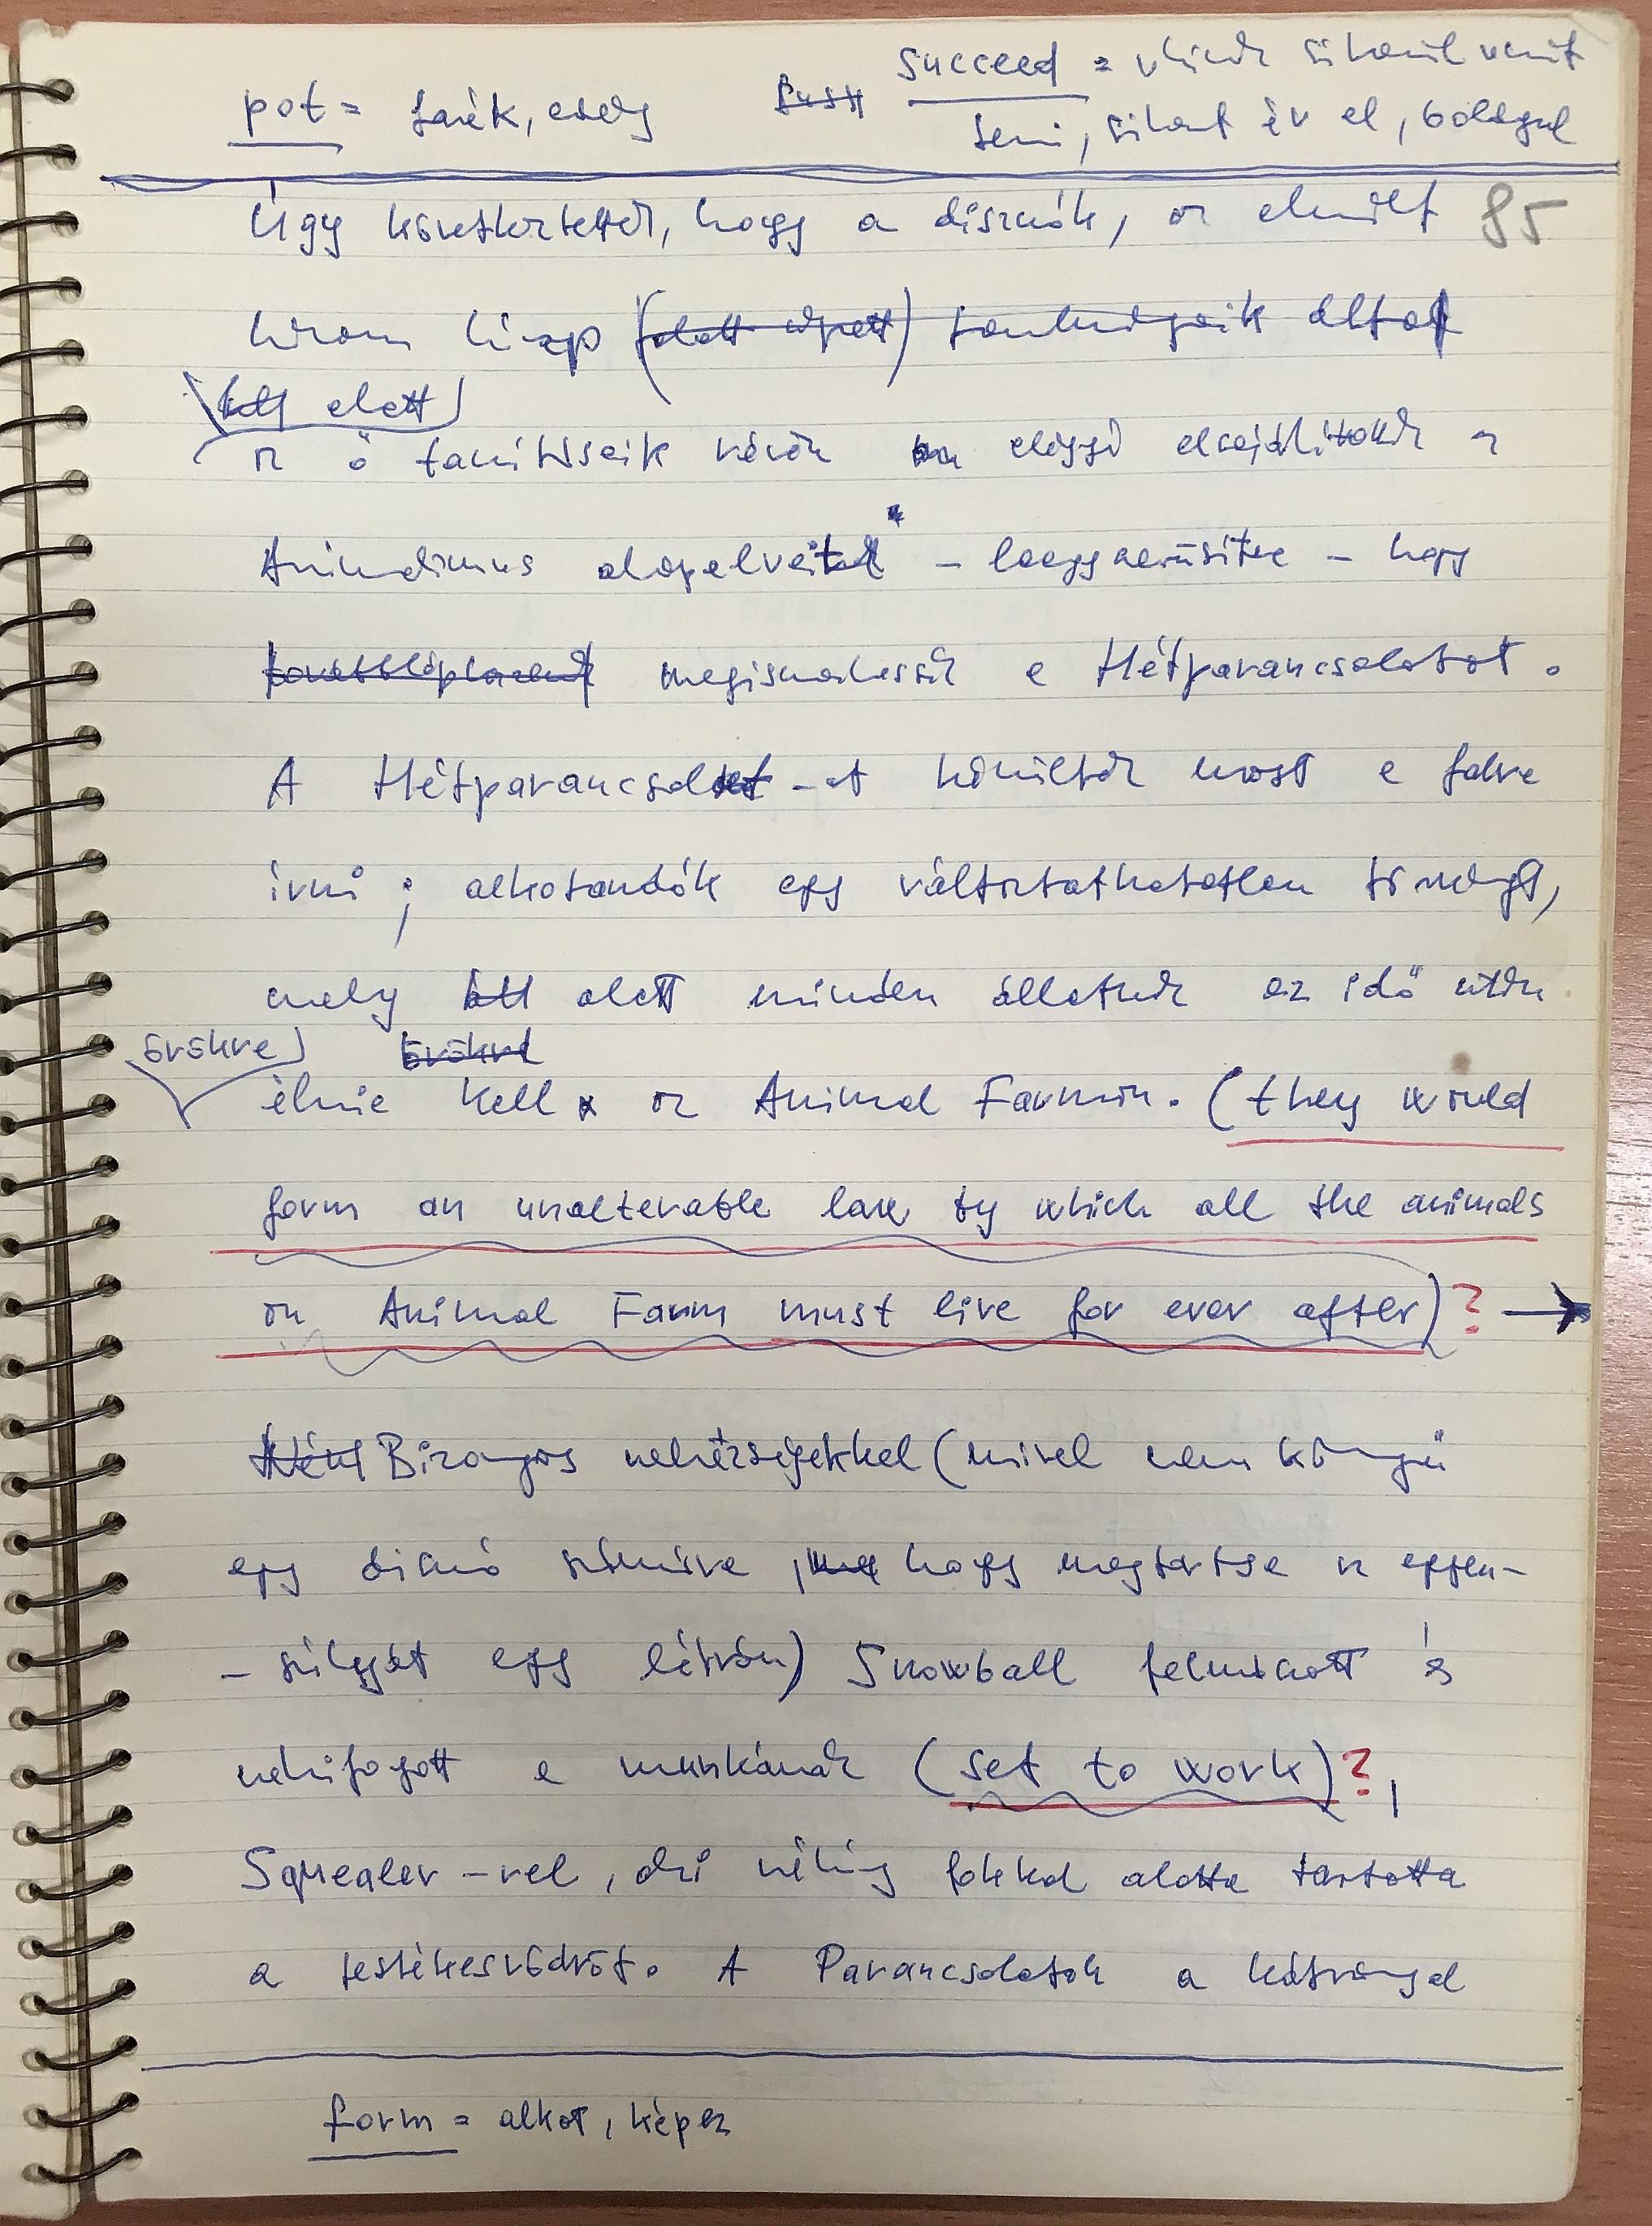 pot = fazék, edény succeed = vkinek sikerül vmit
tenni, sikert ér el, boldogul
Úgy következtettek, hogy a disznók, az elmúlt 85
három hónap
alatt
az ő tanításaik révén eléggé elsajátították az
Animalizmus alapelveit – leegyszerűsítve – hogy
megismerhessék a Hétparancsolatot.
A Hétparancsolat-ot készültek most a falra
írni; alkotandók egy változtathatatlan törvényt,
mely alatt minden állatnak az idő után
örökre örökre
élnie kell az Animal Farmon. (they would
form an unalterable law by which all the animals
on Animal Farm must live for ever after)? →
Bizonyos nehézségekkel (mivel nem könnyű
egy disznó számára, hogy megtartsa az egyen-
-súlyát egy létrán) Snowball felmászott és
nekifogott a munkának (set to work)?,
Squealer-rel, aki néhány fokkal alatta tartotta
a festékesvödröt. A Parancsolatok a kátránnyal
form = alkot, képez